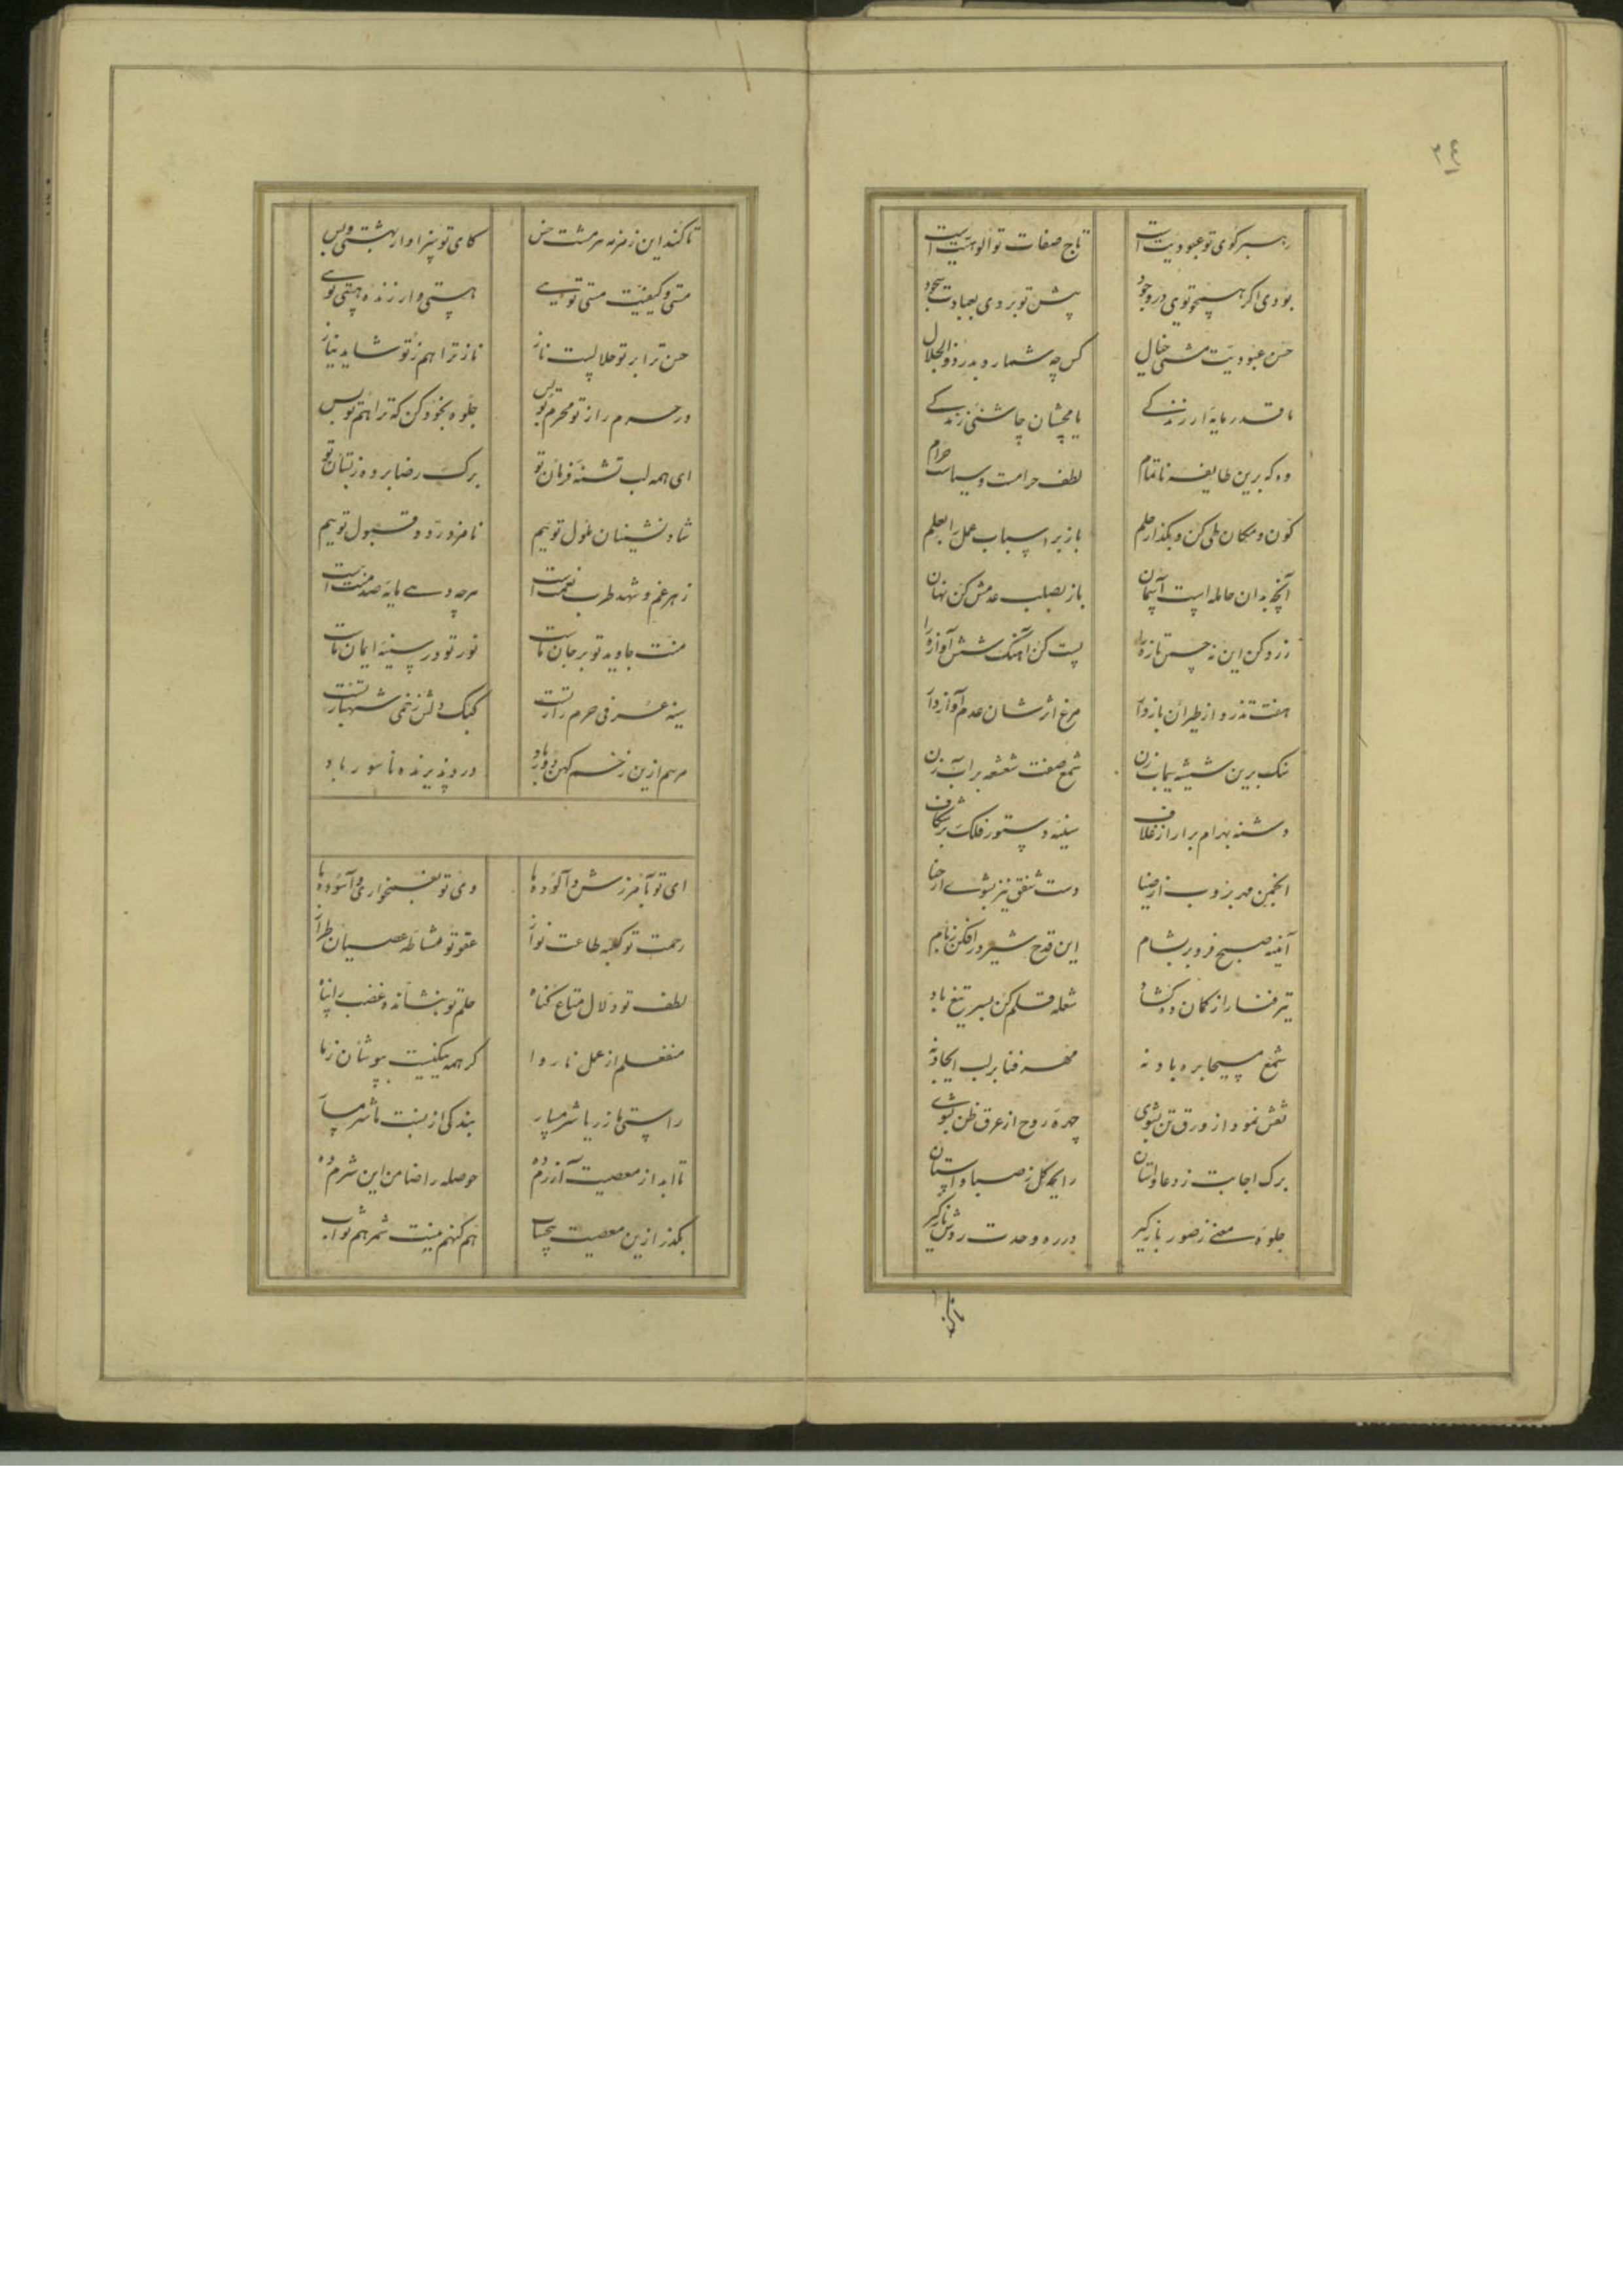 ۲۴
رهبر کوی تو عبودیت است تاج صفات تو الوهیت است
بودی اکر همچو تویی در وجود پیش تو بردی بعبادت سجود
حسن عبودیت مشتی خیال کس چه شمارد بدر ذوالجلال
ما قدر مایه ارزندکی با بچشان چاشنی زندکی
وه که برین طایفه ناتمام لطف حرامست و سیاست حرام
کون و مکان طی کن و بکذار حلم باز بر اسباب عمل را بعلم
آنچه بدان حامله است آسمان باز بصلب عدمش کن نهان
زرد کن این نه چمن تازه را پست کن آهنک شش آوازه را
هفت تذرو از طیران باز دار مرغ اثرشان عدم آواز دار
سنک برین شیشه سیماب زن شمع صفت شعشعه بر آب زن
دشنه بهرام برار از غلاف سینه دستور فلک بر شکاف
انجمن مهر بروب از ضیا دست شفق نیز بشوی از حنا
آینه صبح فرو بر بشام این قدح شیر در افکن ز بام
تیر فنا را ز کمان ده کشاد شعله قلم کن بسر تیغ باد
شمع مسیحا بره باد نه مهر فنا بر لب ایجاد نه
نقش نمود از ورق تن بشوی چهره روح از عرق ظن بشوی
برک اجابت ز دعا واستان رایحه کل ز صبا واستان
جلوه معنی ز صور باز کیر در ره وحدت روش ناز کیر
تا کند این زمزمه هر مشت خس کای تو سزاوار بهشتی و بس
مستی و کیفیت مستی تویی هستی و ارزنده هستی تویی
حسن ترا بر تو حلالست ناز ناز ترا هم ز تو شاید نیاز
در حرم راز تو محرم تو بس جلوه بخود کن که ترا هم تو بس
ای همه لب تشنه فرمان تو برک رضا بر وه ز بستان تو
شاد نشینان ملول توییم نامزد رد و قبول توییم
زهر غم و شهد طرب نعمت است هر چه دهی مایه صد منت است
منت جاوید تو بر جان ماست نور تو در سینه ایمان ماست
سینه عرفی حرم راز تست کبک دلش زخمی شهباز تست
مرهم ازین زخم کهن دور باد درد پذیرنده ناسور باد
ای تو بآمرزش و آلوده ما وی تو بغمخواری و آسوده ما
رحمت تو کعبه طاعت نواز عفو تو مشاطه عصیان طراز
لطف تو دلال متاع کناه حلم تو بنشانده غضب را پناه
منفعلم از عمل ناروا کر همه نیکیست بپوشان ز ما
راستی ما ز ریا شرمسار بندکی از نسبت ما شرمسار
تا ابد از معصیت آزرم ده حوصله را ضامن این شرم ده
بکذر ازین معصیت بیحساب هم کنهم نیست ثمر هم ثواب